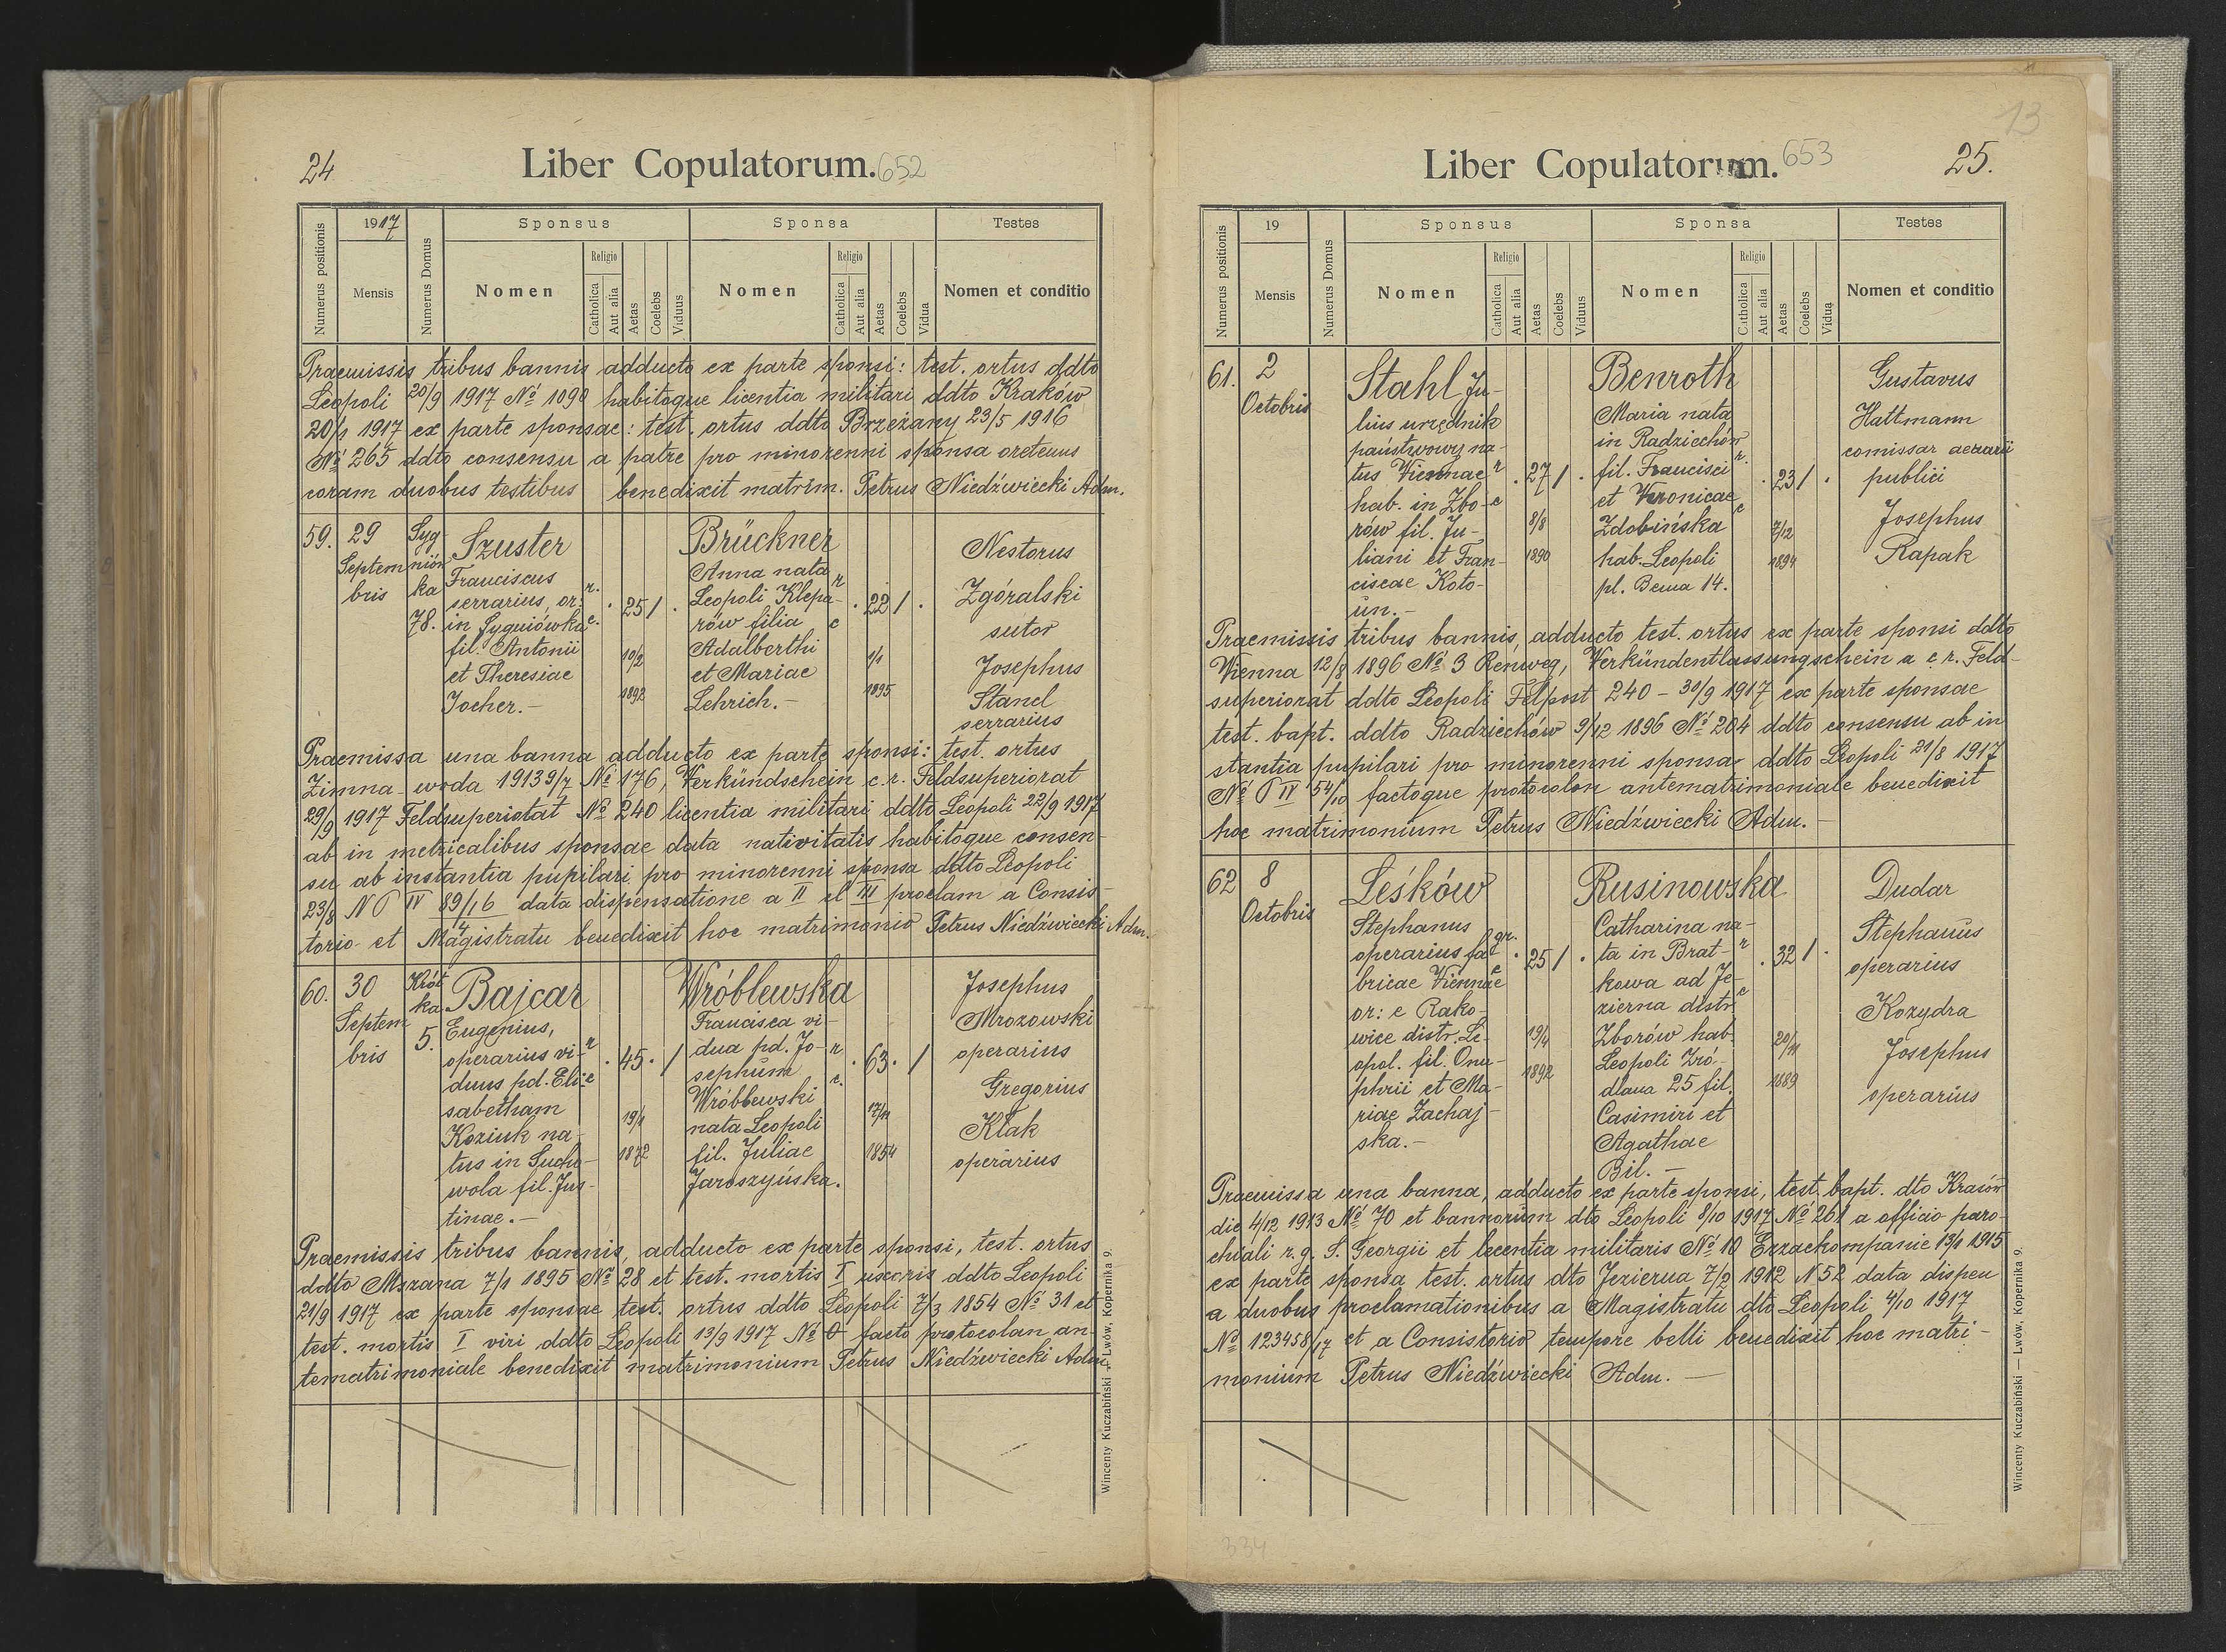 24
Liber Copulatorum. 652
Numerus positionis
1917
Mensis
Numerus Domus
Sponsus
Nomen
Religio
Catholica
Aut alia
Aetas
Coelebs
Viduus
Sponsa
Nomen
Religio
Catholica
Aut alia
Aetas
Coelebs
Vidua
Testes
Nomen et conditio
Praemissis tribus bannis adducto ex parte sponsi: test. ortus ddto
Leopoli 20/9 1917 № 1090 habitoque licentia militari ddto Kraków
20/1 1917 ex parte sponsae: test. ortus ddto Brzeżany 23/5 1916
№ 265 ddto consensu a patre pro minorenni sponsa oretenus
coram duobus testibus benedixit matrim. Petrus Niedźwiecki Adm.
59.
29
Septem
bris
Syg
niów
ka
78.
Szuster
Franciscus
serrarius, or:
in Sygniówka
fil. Antonii
et Theresiae
Jocher.-
r.
c.
25
/
10/2
1892
Brückner
Anna nata
Leopoli Klepa-
rów filia
Adalberthi
et Mariae
Lehrich.-
r
c
22
/
1/1
1895
Nestorus
Zgóralski
sutor
Josephus
Stanel
serrarius
Praemissa una banna adducto ex parte sponsi: test. ortus
Zimna-woda 1913 9/7 № 176, Verkündschein c. r. Feldsuperiorat
29/9 1917 Feldsuperiotat № 240 licentia militari ddto Leopoli 22/9 1917
ab in metricalibus sponsae data nativitatis habitoque consen-
su ab instantia pupilari pro minorenni sponsa ddto Leopoli
23/8 N P IV 89/16 data dispensatione a II et III proclam a Consis-
4
torio et Magistratu benedixit hoc matrimonio Petrus Niedźwiecki Adm.
60.
30
Septem
bris
Krót
ka
5.
Bajcar
Eugenius,
operarius vi-
duus pd. Eli-
sabetham
Koziuk na-
tus in Sucho-
wola fil. Jus-
tinae.-
r
c
45.
/
19/1
1872
Wróblewska
Francisca vi-
dua pd. Jo-
sephum
Wróblewski
nata Leopoli
fil. Juliae
Jaroszyńska.
r
c.
63.
/
17/11
1854
Josephus
Mrozowski
operarius
Gregorius
Kłak
operarius
Praemissis tribus bannis, adducto ex parte sponsi, test. ortus
ddto Mszana 7/1 1895 № 28 et test. mortis I uxoris ddto Leopoli
21/9 1917 ex parte sponsae test. ortus ddto Leopoli 7/3 1854 № 31 et
test. mortis I viri ddto Leopoli 13/9 1917 № 0 facto protocolan an-
tematrimoniale benedixit matrimonium Petrus Niedźwiecki Adm.
Wincenty Kuczabiński — Lwów, Kopernika 9.
13
Liber Copulatorum. 653
25.
Numerus positionis
19
Mensis
Numerus Domus
Sponsus
Nomen
Religio
Catholica
Aut alia
Aetas
Coelebs
Viduus
Sponsa
Nomen
Religio
Catholica
Aut alia
Aetas
Coelebs
Vidua
Testes
Nomen et conditio
61.
2
Octobris
Stahl Ju-
lius urzędnik
państwowy na-
tus Viennae
hab. in Zbo-
rów fil. Ju-
liani et Fran-
ciscae Koto-
un.-
r
c
27
/
8/8
1890
Benroth
Maria nata
in Radziechów
fil. Francisci
et Veronicae
Zdobińska
hab. Leopoli
pl. Bema 14.
r.
c
23
/
7/12
1894
Gustavus
Hattmann
comissar aerarii
publici
Josephus
Rapak
Praemissis tribus bannis, adducto test. ortus ex parte sponsi ddto
Vienna 12/8 1896 № 3 Renweg, Verkündentlassungschein a c. r. Feld-
superiorat ddto Leopoli Felpost 240 - 30/9 1917 ex parte sponsae
test. bapt. ddto Radziechów 9/12 1896 № 204 ddto consensu ab in
stantia pupilari pro minorenni sponsa ddto Leopoli 21/8 1917
№ P IV 54/10 factoque protocolon antematrimoniale benedixit
hoc matrimonium Petrus Niedźwiecki Adm.-
62
8
Octobris
Leśków
Stephanus
operarius fa-
bricae Viennae
or: e Rako-
wice distr. Le-
opol. fil. Onu-
phrii et Ma-
riae Zachaj-
ska.-
gr.
c
25
/
19/4
1892
Rusinowska
Catharina na-
ta in Brat-
kowa ad Je-
zierna distr.
Zborów hab.
Leopoli Źró-
dlana 25 fil.
Casimiri et
Agathae
Bil.-
r
c
32
/
20/11
1889
Dudar
Stephanus
operarius
Kozydra
Josephus
operarius
Praemissa una banna, adducto ex parte sponsi, test. bapt. dto Krasów
die 4/12 1913 № 70 et bannorum dto Leopoli 8/10 1917 № 261 a officio paro-
chiali r. g. S. Georgii et licentia militaris № 10 Erzackompanie 13/1 1915
ex parte sponsa test. ortus dto Jezierna 7/2 1912 N 52 data dispen
a duobus proclamationibus a Magistratu dto Leopoli 4/10 1917
№ 123458/17 et a Consistorio tempore belli benedixit hoc matri-
monium Petrus Niedźwiecki Adm.-
334
Wincenty Kuczabiński — Lwów, Kopernika 9.